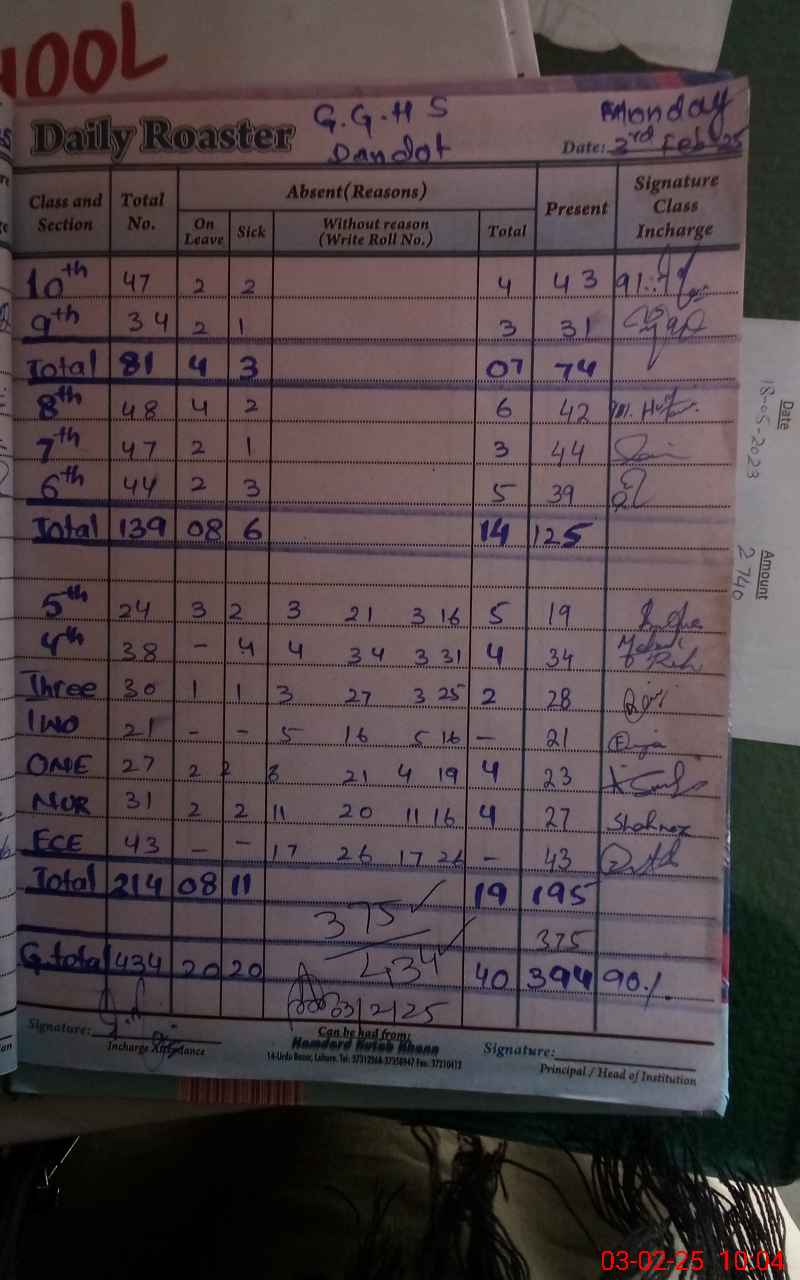 HOOL
G.G.H S Monday
Daily Roaster Dandot Date: 3rd Feb 25
Class and Section Total No. Absent(Reasons) Present Signature Class Incharge
On Leave Sick Without reason (Write Roll No.) Total
10th 47 2 2 4 43
9th 34 2 1 3 31
Total 81 4 3 07 74
8th 48 4 2 6 42
7th 47 2 1 3 44
6th 44 2 3 5 39
Total 139 08 6 14 125
5th 24 3 2 3 21 3 16 5 19
4th 38 - 4 4 34 3 31 4 34
Three 30 1 1 3 27 3 25 2 28
TWO 21 - - 5 16 5 16 - 21
ONE 27 2 2 21 4 19 4 23
NUR 31 2 2 11 20 11 16 4 27 Shahnaz
ECE 43 - - 17 26 17 26 - 43
Total 214 08 11 19 195
375 ✓
375
G.total 434 20 20 434 ✓ 40 394 90%
03/2/25
Signature: Can be had from: Signature:
Incharge Attendance Hamdard Kutab Khana Principal / Head of Institution
14-Urdu Bazar, Lahore.
Date
18-05-2023
Amount
2740
03-02-25 10:04